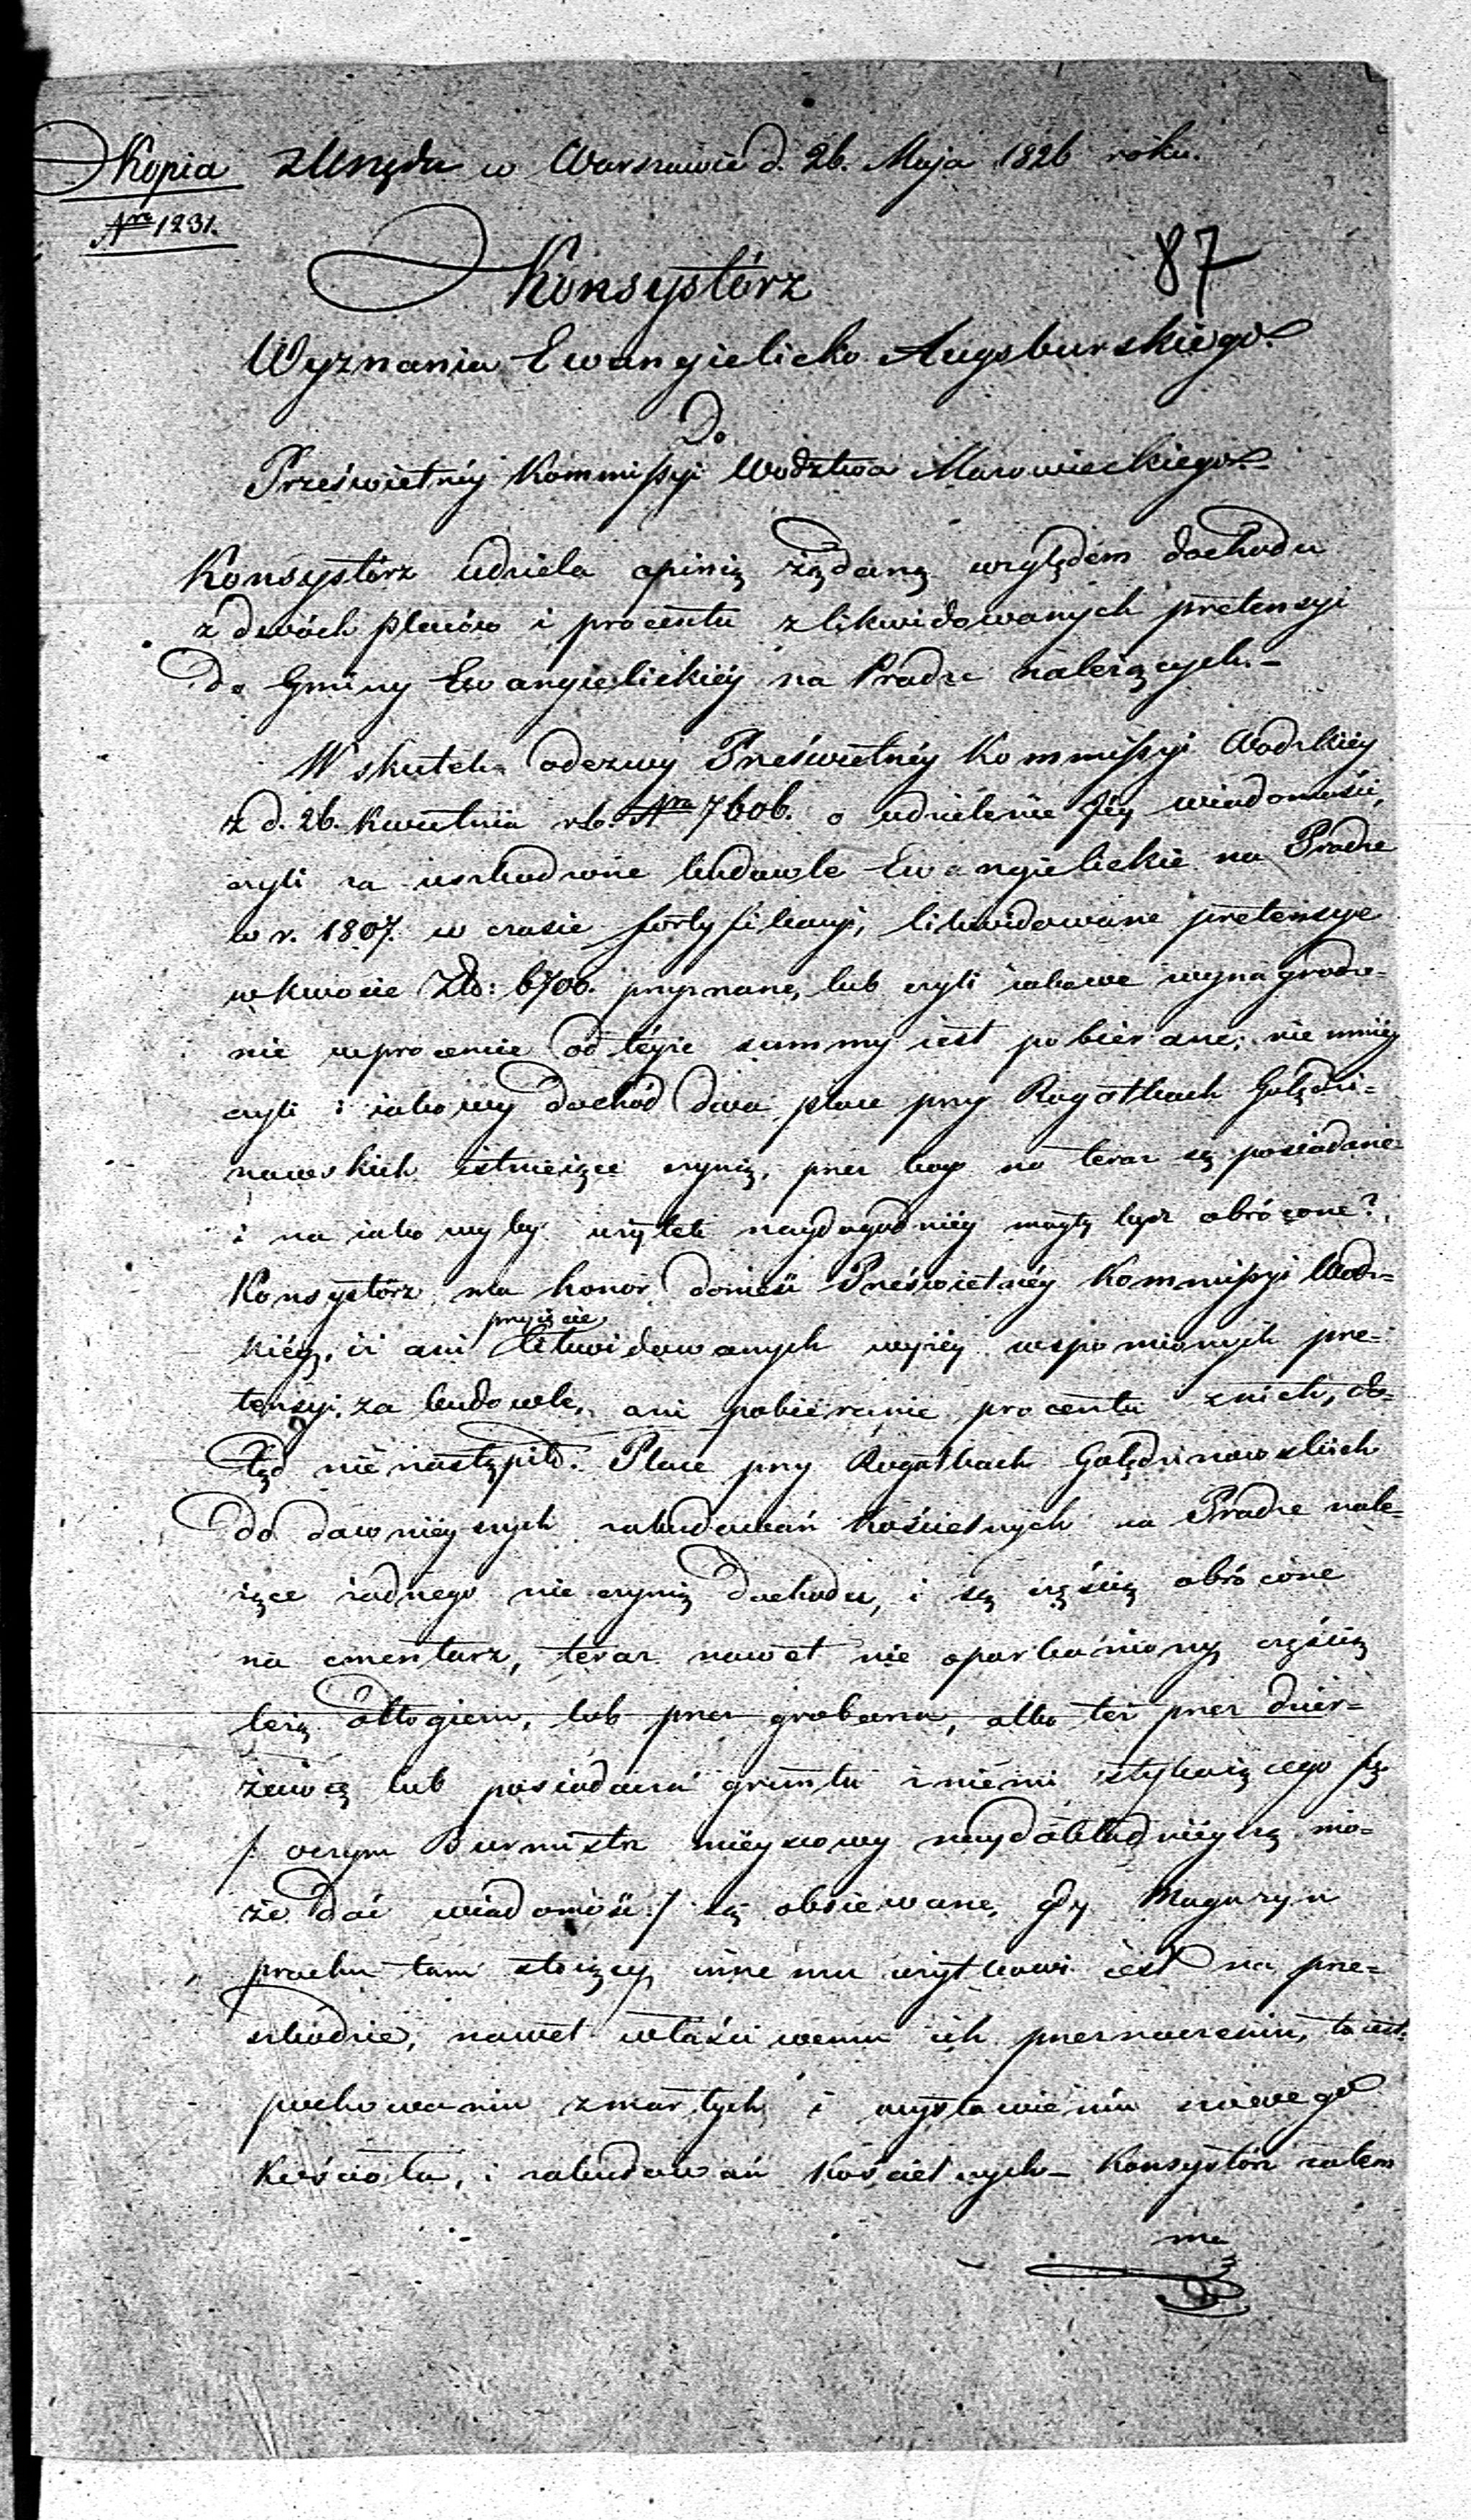 Kopia z Urzędu w Warszawie d. 26. Maja 1826 roku.
Nro 1231.
87
Konsystórz
Wyznania Ewangielicko Augsburskiego.
Do
Prześwietnéy Kommissyi Wodztwa Mazowieckiego.
Konsystórz udziela opinią żądaną względem dochodu
z dwóch placów i procentu zlikwidowanych pretensyi
do Gminy Ewangielickiéy na Pradze należących.-
W skutek odezwy Prześwietnéy Kommissyi Wodzkiéy
z d. 26. Kwietnia r.b. Nro 7606. o udzielenie Jéy wiadomości,
czyli za uszkodzone budowle Ewangielickie na Pradze
w r. 1807. w czasie fortyfikacyi, likwidowane pretensye
w kwocie Złp: 6700. przyznane, lub czyli iakowe wynagrodze-
nie w procencie od téyże summy iest pobierane; nie mniéy
czyli i iakowy dochód dwa place przy Rogatkach Golędzi-
nowskich istnieiące czynią, przez kogo na teraz są posiadane
i na iakowyby użytek naydogodniéy mogły bydz obrócone?
Konsystórz ma honor donieść Prześwietnéy Kommissyi Wodz-
kiéy, iż ani przyięcie likwidowanych wyżéy wspomnionych pre-
tensyi za budowle, ani pobieranie procentu z nich, do-
tąd nie nastąpiło. Place przy Rogatkach Golędzinowskich
do dawniéyszych zabudowań kościelnych na Pradze nale-
żące żadnego nie czynią dochodu, i są częścią obrócone
na cmentarz, teraz nawet nie oparkaniony, częścią
leżą odłogiem, lub przez grabarza, albo też przez dzier-
żawcę lub posiadacza gruntu z niemi stykaiącego się
/: oczym Burmistrz mieyscowy naydokładnieyszą mo-
że dać wiadomość :/ są obsiewane, gdy Magazyn
prochu tam stoiący innemu użytkowi iest na prze-
szkodzie, nawet właściwemu ich przeznaczeniu, to iest:
pochowaniu zmarłych i wystawieniu nowego
Kościoła, i zabudowań kościelnych.- Konsystórz zatem
ma